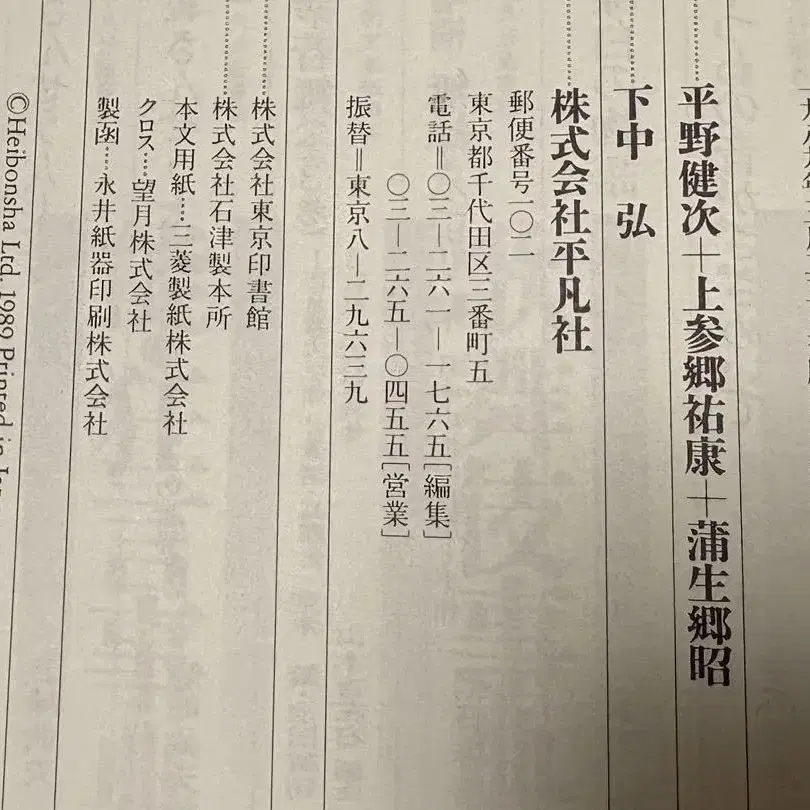 平野健次＋上参郷祐康＋蒲生郷昭
下中　弘
株式会社平凡社
郵便番号一〇二
東京都千代田区三番町五
電話＝〇三―二六一―一七六五［編集］
〇三―二六五―〇四五五［営業］
振替＝東京八―二九六三九
株式会社東京印書館
株式会社石津製本所
本文用紙…三菱製紙株式会社
クロス…望月株式会社
製函…永井紙器印刷株式会社
©Heibonsha Ltd. 1989 Printed in